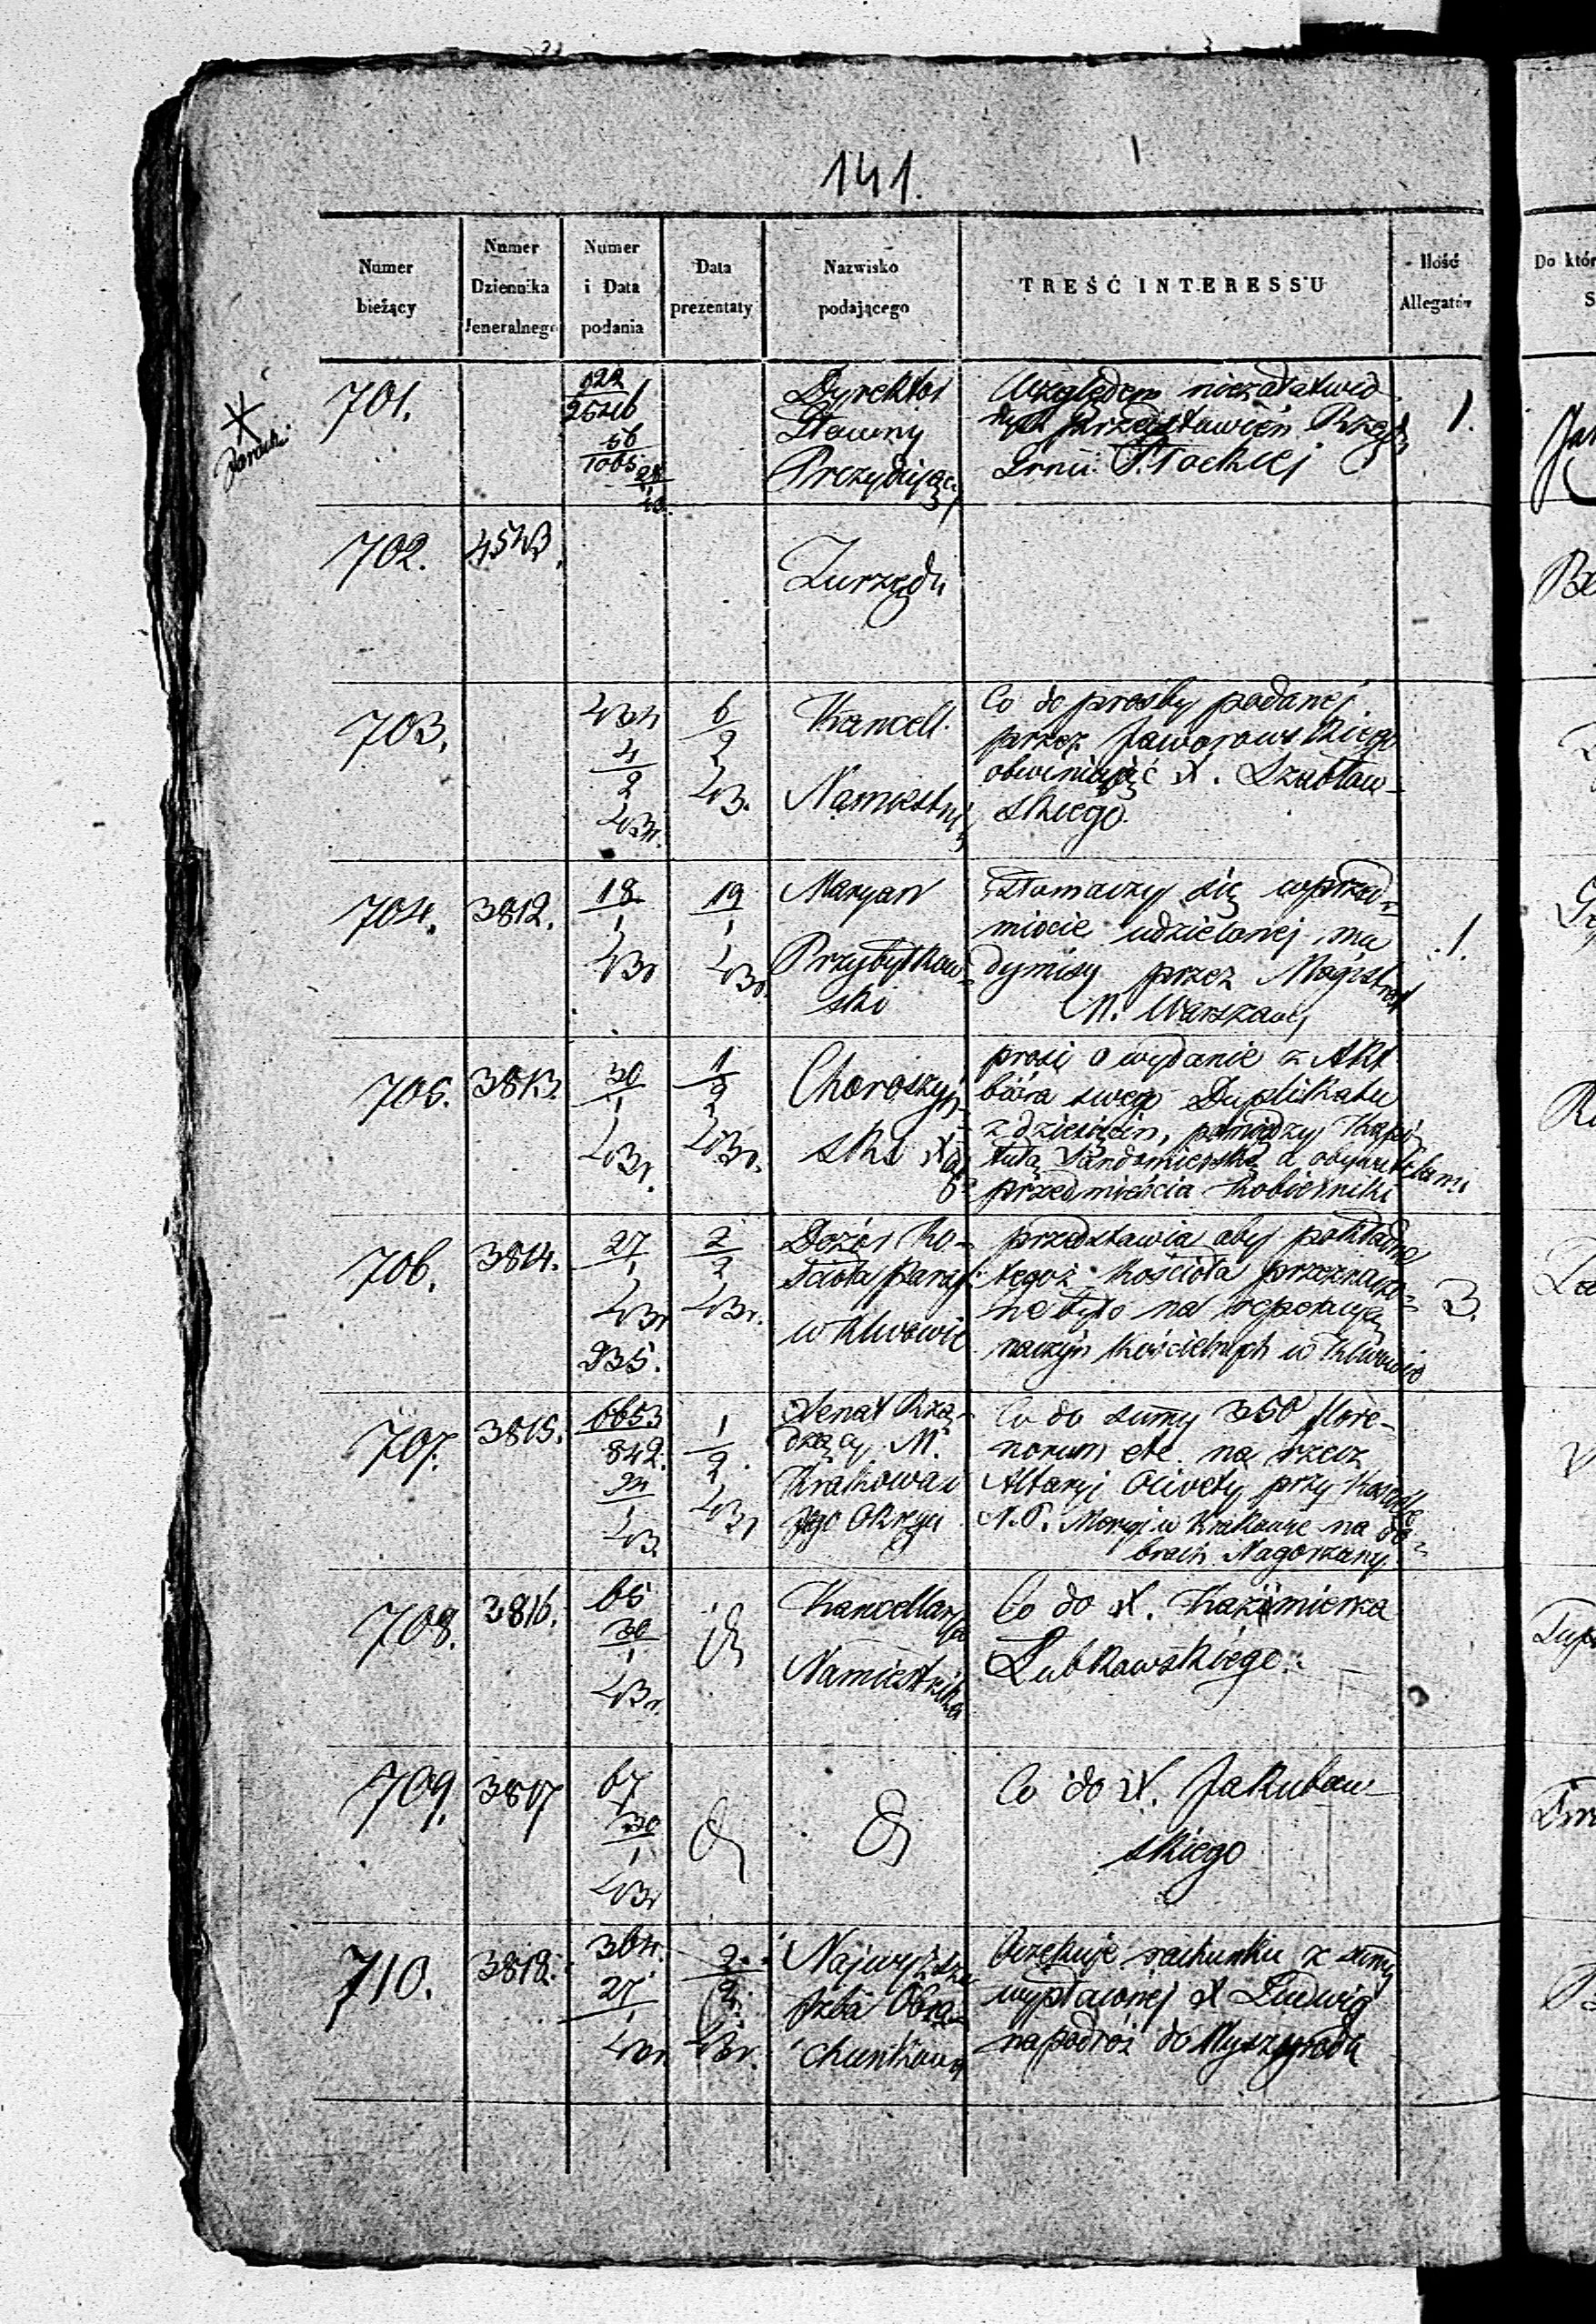 141.
Numer bieżący
Numer Dziennika Jeneralnego
Numer i Data podania
Data prezentaty
Nazwisko podającego
TREŚĆ INTERESSU
Ilość Allegatów
701.
Dyrektor
Główny
Prezydujący
Względem niezałatwio-
nych przedstawień Rządu
Grnii Płockiej
1.
702.
Zurzędu
703.
4
2
6
2
43.
Kancell.
Namiestni
Co do prośby podanej
przez Jaworowskiego
obwiniając X. Szabław-
skiego.
704.
3812.
18
1
43r
19
1
43r.
Maryan
Przybyłkow-
ski
Tłomaczy się wprzed-
miocie udzielonej mu
dymisyi przez Magistrat
M. Warszawy
1.
705.
3813.
30
1
43r.
1
2
43r.
Choroszyń-
ski X
prosi o wydanie z Akt
bióra swego Duplikatu
z dziesięcin, pomiędzy Kapi-
tułą Sandomierską a obywatelami
przedmieścia Kobierniki
706.
3814.
27
1
43r
935.
2
2
43r.
Dozór Ko-
ścioła Paraf.
w Klwowie
przedstawia aby pokładne
tegoż Kościoła przeznaczo-
ne było na reperacyą
naczyń Kościelnych w Klwowie
3.
707.
3815.
6653
842.
24
1
43.
1
2.
43r
Senat Rzą-
dzący M.
Krakowa z
Jego Okręgu
Co do summy 350 flore-
norum etc. na rzecz
Altaryi Olivety przy Kościele
N. P. Maryi w Krakowie na do-
brach Nagorzany
708.
3816.
65
30
1
43r.
Kancellarya
Namiestnika
Co do X. Kazimierza
Lubkowskiego.
709.
3817
67
30
1
43r
Co do X. Jakubow-
skiego
710.
3818.
364.
27
1
43r
2.
2.
43r.
Najwyższa
Izba Obra-
chunkowa
Oczekuje rachunku z summy
wypłaconej X Ludwig
na podróż do Wyszogroda